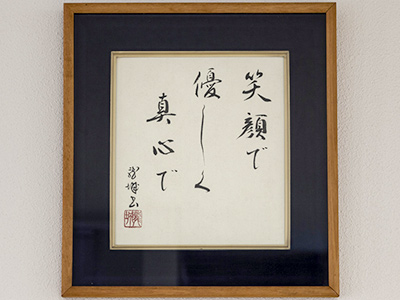 笑顔で
優しく
真心で